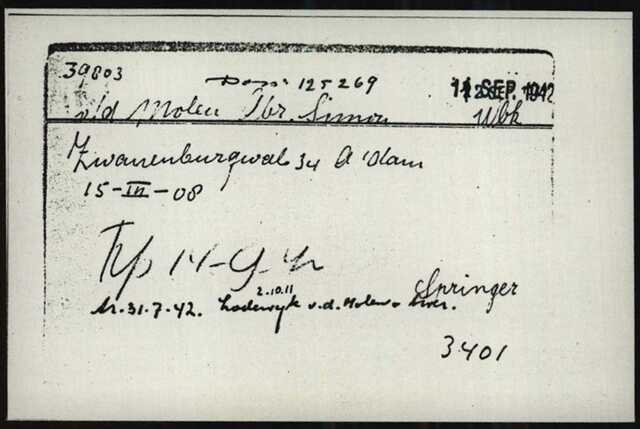 39803
Doss: 125269
14 SEP. 1942
v/d Molen Isr. Simon
Wbk
Zwanenburgwal 34 A'dam
15-III-08
Trp 14-9-42
2.10.11
Springer
tr. 31.7.42. Lodewyk v.d. Molen
3401